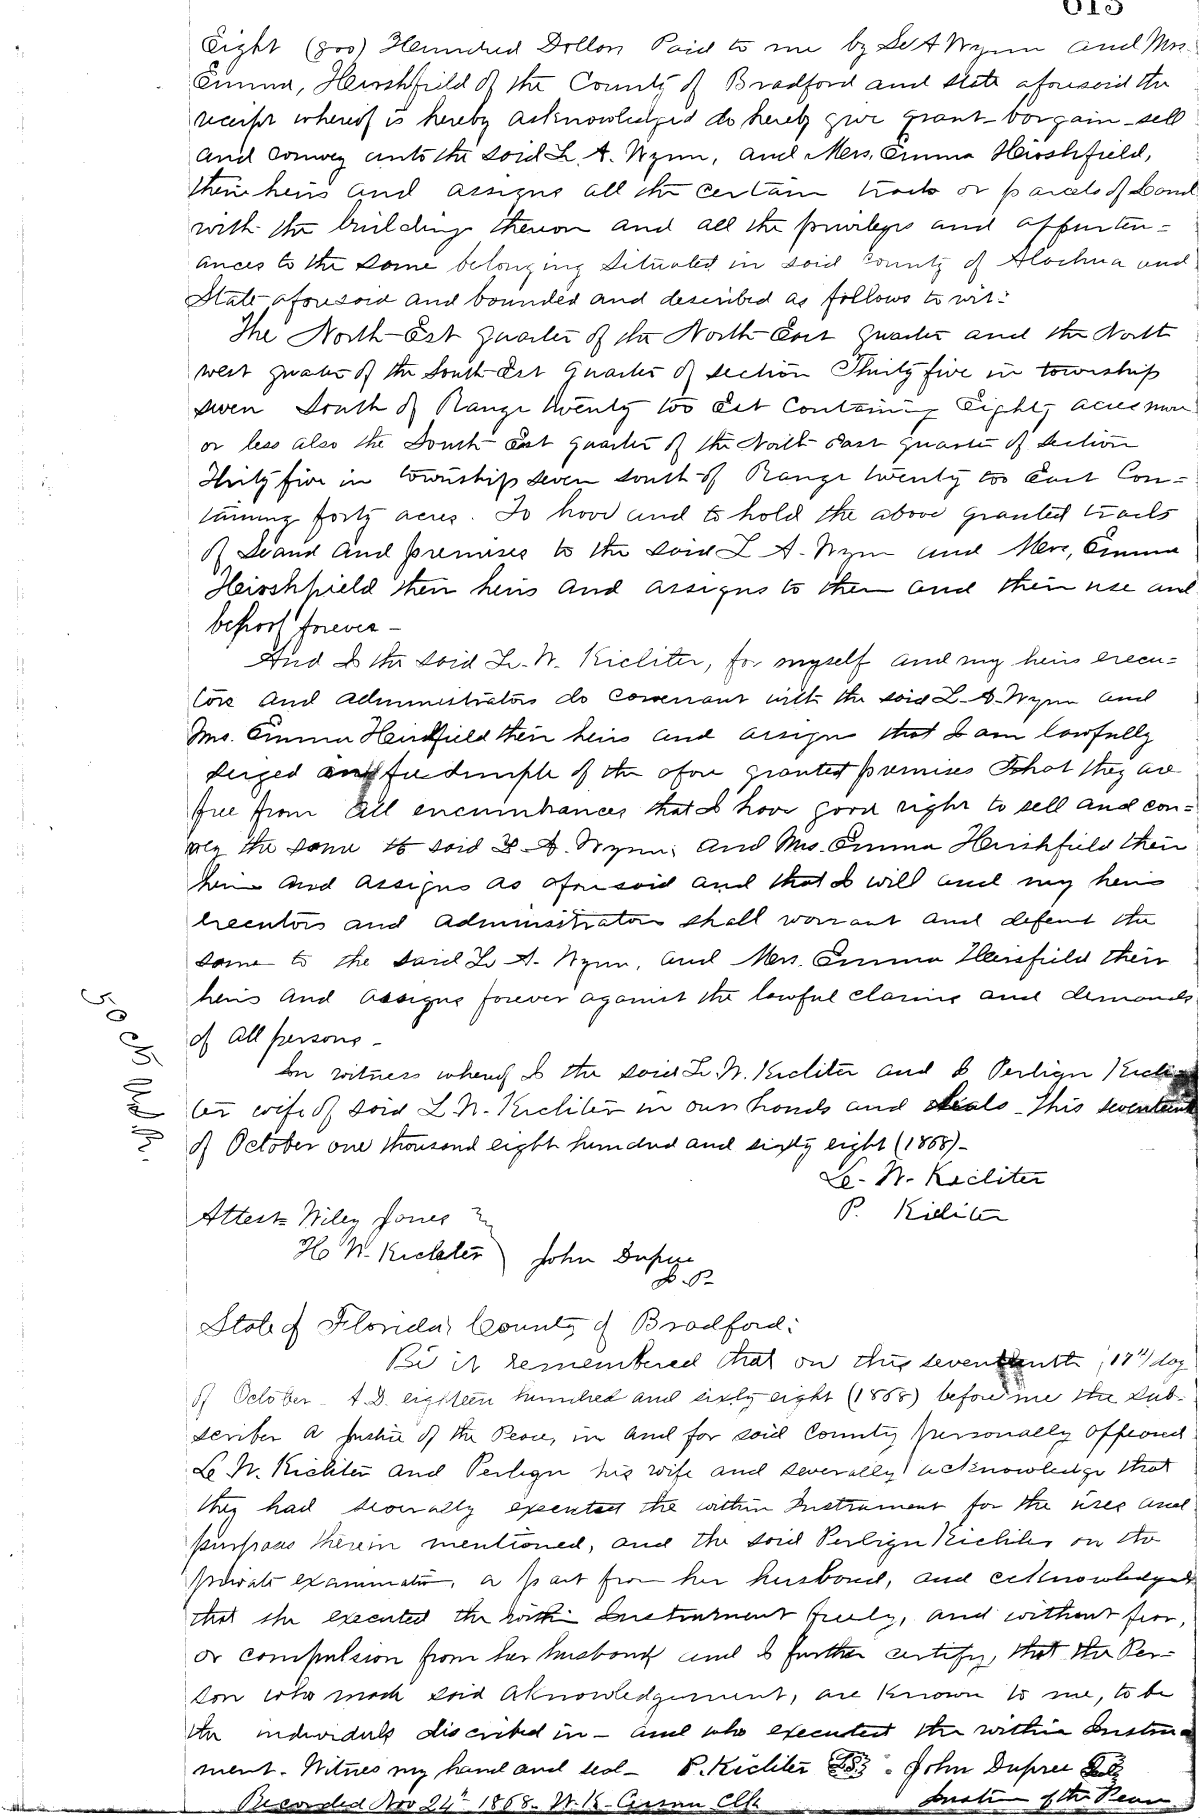 615
Eight (800) Hundred Dollars Paid to me by L. A Wynn and Mrs.
Emma, Hirshfield of the County of Bradford and state aforesaid the
receipt whereof is hereby acknowledged do hereby give grant - bargain - sell
and convey unto the said L. A. Wynn, and Mrs. Emma Hirshfield,
their heirs and assigns all the certain tracts or parcels of Land
with the buildings thereon and all the privileges and appurten=
ances to the same belonging situated in said County of Alachua and
State aforesaid and bounded and described as follows to wit:
The North-Est quarter of the North-East quarter and the North
west quarter of the South-Est Quarter of section Thirty five in township
seven South of Range twenty too Est Containing Eighty acres more
or less also the South-Est quarter of the North-East quarter of section
Thirty five in township seven south of Range twenty too East Con=
taining forty acres. To have and to hold the above granted tracts
of Land and premises to the said L A. Wynn and Mrs, Emma
Hirshfield their heirs and assigns to them and their use and
behoof forever -
And I the said L. W. Kickliter, for myself and my heirs execu=
tors and administrators do covenant with the said L. A. Wynn and
Mrs. Emma Hirshfield their heirs and assigns that I am lawfully
seized in fee simple of the afore granted premises that they are
free from all encumbrances that I have good right to sell and con=
vey the same to said L. A. Wynn, and Mrs. Emma Hirshfield their
heirs and assigns as aforesaid and that I will and my heirs
executors and administrators shall warrant and defend the
same to the said L. A. Wynn, and Mrs. Emma Heirsfield their
heirs and assigns forever against the lawful claims and demands
of all persons -
50 cts
In witness whereof I the said L. W. Kickliter and I Perlign Kickli-
ter wife of said L. W. Kickliter in our hands and seals - this seventeenth
of October one thousand eight hundred and sixty eight (1868) -
L. W. Kickliter
P. Kickliter
Attest Wiley Jones
H W. Kickliter John Dupree
J. P.
State of Florida; County of Bradford:
Be it remembered that on this seventeenth, 17th day
of October A.D. eighteen hundred and sixty eight (1868) before me the sub-
scriber a Justice of the Peace, in and for said County personally appeared
L. W. Kickliter and Perlign his wife and severally acknowledge that
they had severally executed the within Instrument for the uses and
purposes therein mentioned, and the said Perlign Kickliter on the
private examination, a part from her husband, and acknowledged
that she executed the within Instrument freely, and without fear,
or compulsion from her husband and I further certify, that the Per=
son who made said aknowledgement, are known to me, to be
the individuals discribed in - and who executed the within Instru=
ment. Witness my hand and seal - P. Kickliter LS. John Dupree LS
Recorded Nov 24th 1868 - W. K. Clk Justice of the Peace